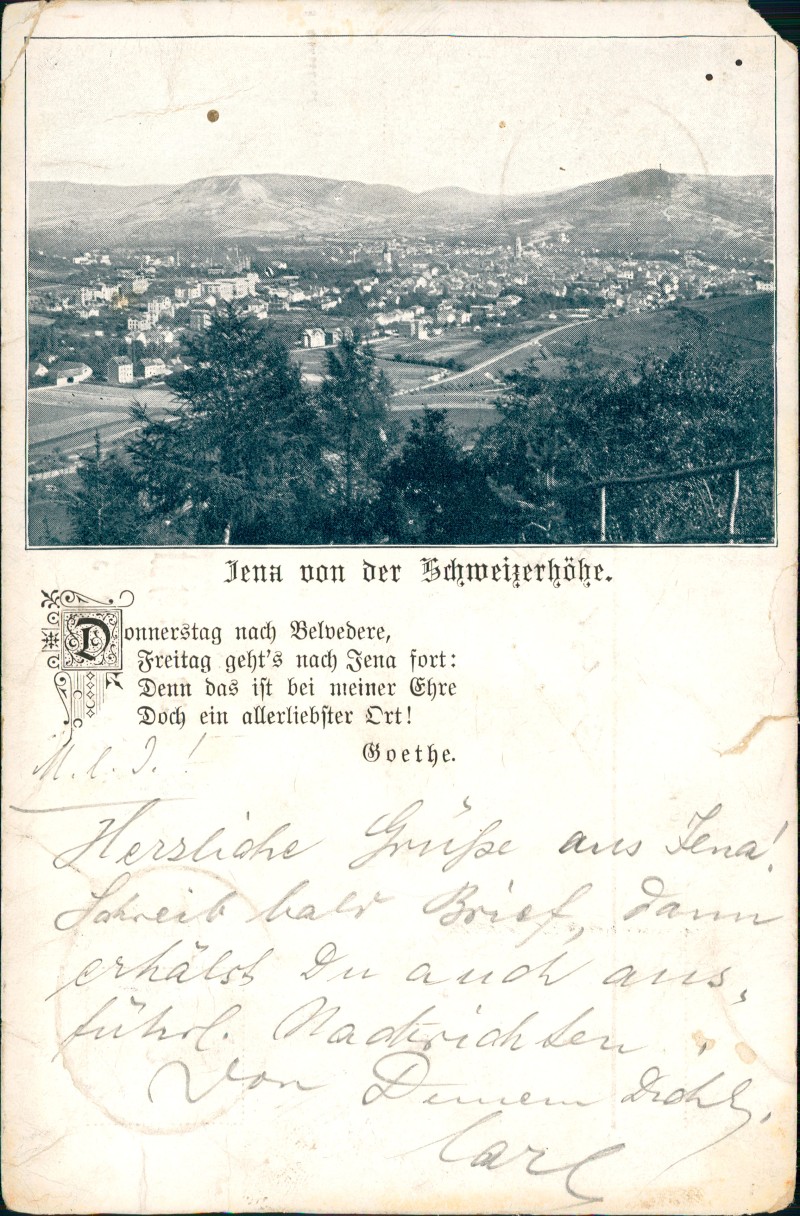 Jena von der Schweizerhöhe.
Donnerstag nach Belvedere,
Freitag geht's nach Jena fort:
Denn das ist bei meiner Ehre
Doch ein allerliebster Ort!
Goethe.
M. l. J.!
Herzliche Grüße aus Jena!
Schreib bald Brief, dann
erhälst Du auch aus-
führl. Nachrichten.
Von Deinem Dichl.
Carl